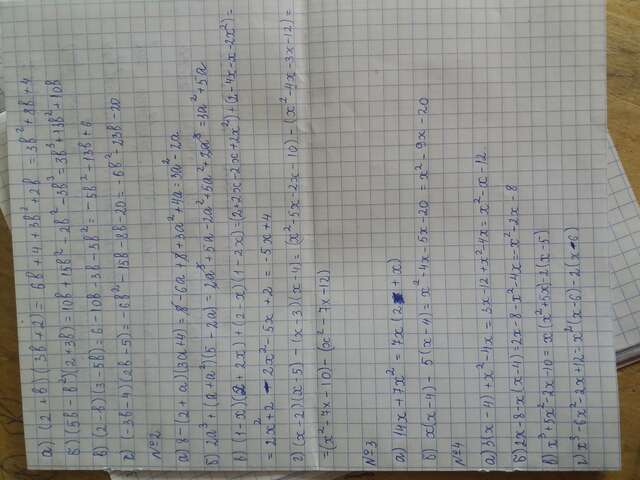 а) (2 + b)(3b + 2) = 6b + 4 + 3b² + 2b = 3b² + 8b + 4
б) (5b - b²)(2 + 3b) = 10b + 15b² - 2b² - 3b³ = 3b³ + 13b² + 10b
в) (2 - b)(3 - 5b) = 6 - 10b - 3b - 5b² = -5b² - 13b + 6
г) (-3b - 4)(2b - 5) = -6b² - 15b - 8b - 20 = -6b² - 23b - 20
№2
а) 8 - (2 + a)(3a + 4) = 8 - 6a + 8 + 3a² + 4a = 3a² - 2a
б) 2a³ + (a + a²)(5 - 2a) = 2a³ + 5a - 2a² + 5a² + 2a³ = 3a² + 5a
в) (1 - x)(2 + 2x) + (2 - x)(1 - 2x) = (2 + 2x - 2x + 2x²) + (2 - 4x - x - 2x²) =
= 2x² + 2 - 2x² - 5x + 2 = -5x + 4
г) (x - 2)(x - 5) - (x - 3)(x - 4) = (x² - 5x - 2x - 10) - (x² - 4x - 3x - 12) =
= (x² - 7x - 10) - (x² - 7x - 12)
№3
а) 14x + 7x² = 7x(2 + x)
б) x(x - 4) - 5(x - 4) = x² - 4x - 5x - 20 = x² - 9x - 20
№4
а) 3(x - 4) + x² - 4x = 3x - 12 + x² - 4x = x² - x - 12
б) 2x - 8 - x(x - 4) = 2x - 8 - x² - 4x = -x² - 2x - 8
в) x³ + 5x² - 2x - 10 = x(x² + 5x) - 2(x - 5)
г) x³ - 6x² - 2x + 12 = x²(x - 6) - 2(x - 6)